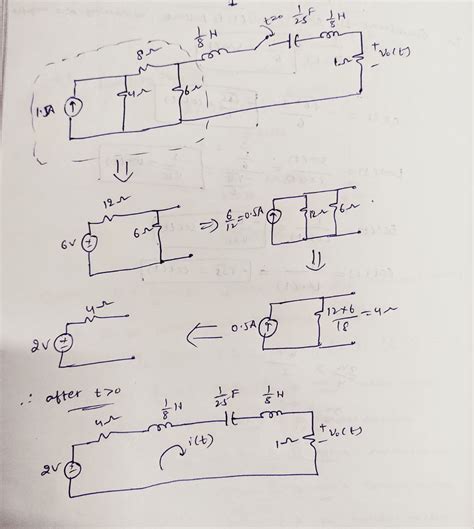 1/8 H t=0 1/25 F 1/8 H
8Ω
1.5A 4Ω 6Ω 1Ω + v₀(t) -
⇓
12Ω
6V 6Ω ⇒ 6/12 = 0.5A 12Ω 6Ω
⇓
4Ω
2V ⇐ 0.5A 12×6/18 = 4Ω
∴ after t>0
4Ω 1/8 H 1/25 F 1/8 H
2V i(t) 1Ω + v₀(t) -